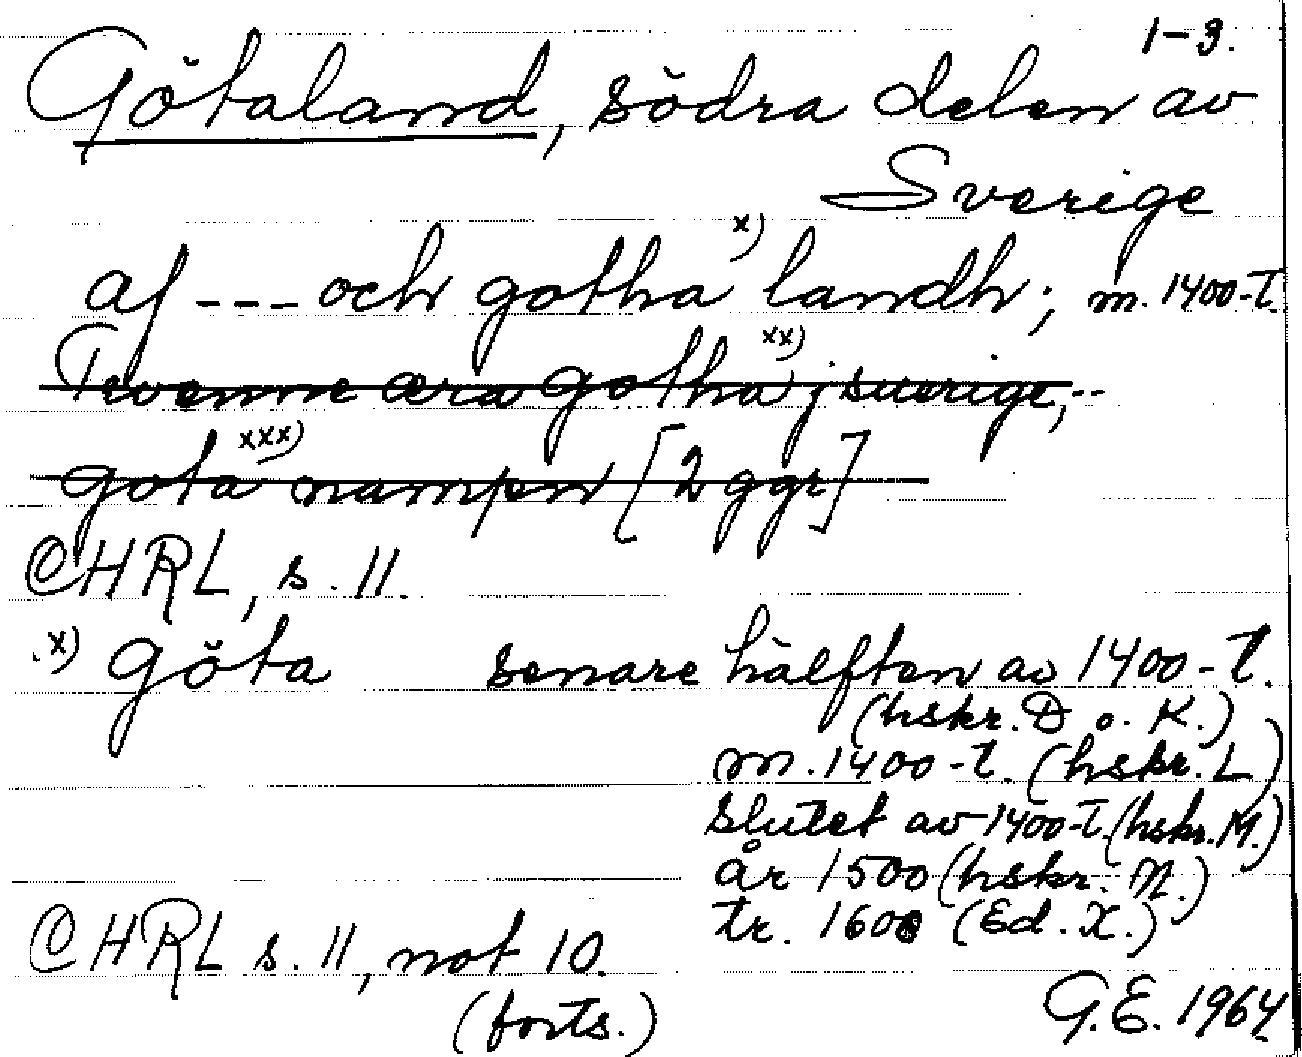 1-3.
Götaland, södra delen av
Sverige
af --- och gotha x) landh; m. 1400-t.
Twenne æra gotha xx) j suerige,--
gota xxx) nampn [2 ggr]
CHRL, s. 11.
x) göta senare hälften av 1400-t.
(hskr. D o. K.)
m. 1400-t. (hskr. L)
slutet av 1400-t. (hskr. M.)
år 1500 (hskr. N.)
tr. 1608 (Ed. X.)
CHRL s. 11, not 10.
(forts.)
G.E. 1964